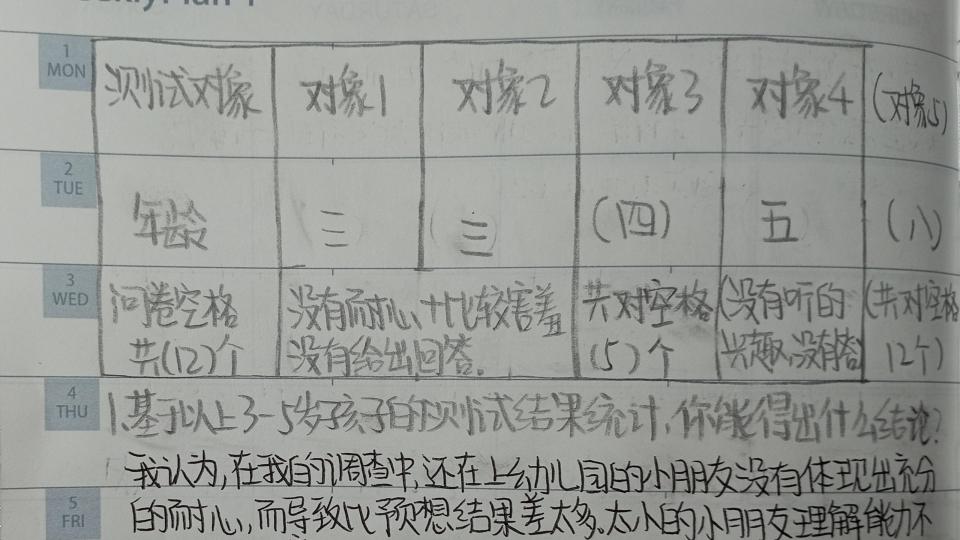 1 MON
测试对象 对象1 对象2 对象3 对象4 (对象5)
2 TUE
年龄 三 (三) (四) 五 (八)
3 WED
问卷空格 没有耐心,十比较害羞 共对空格 (没有听的 (共对空格
共(12)个 没有给出回答. (5)个 兴趣,没有答 12个)
4 THU
1.基于以上3-5岁孩子的测试结果统计,你能得出什么结论?
我认为,在我的调查中,还在上幼儿园的小朋友没有体现出充分
5 FRI
的耐心,而导致比预想结果差太多。太小的小朋友理解能力不